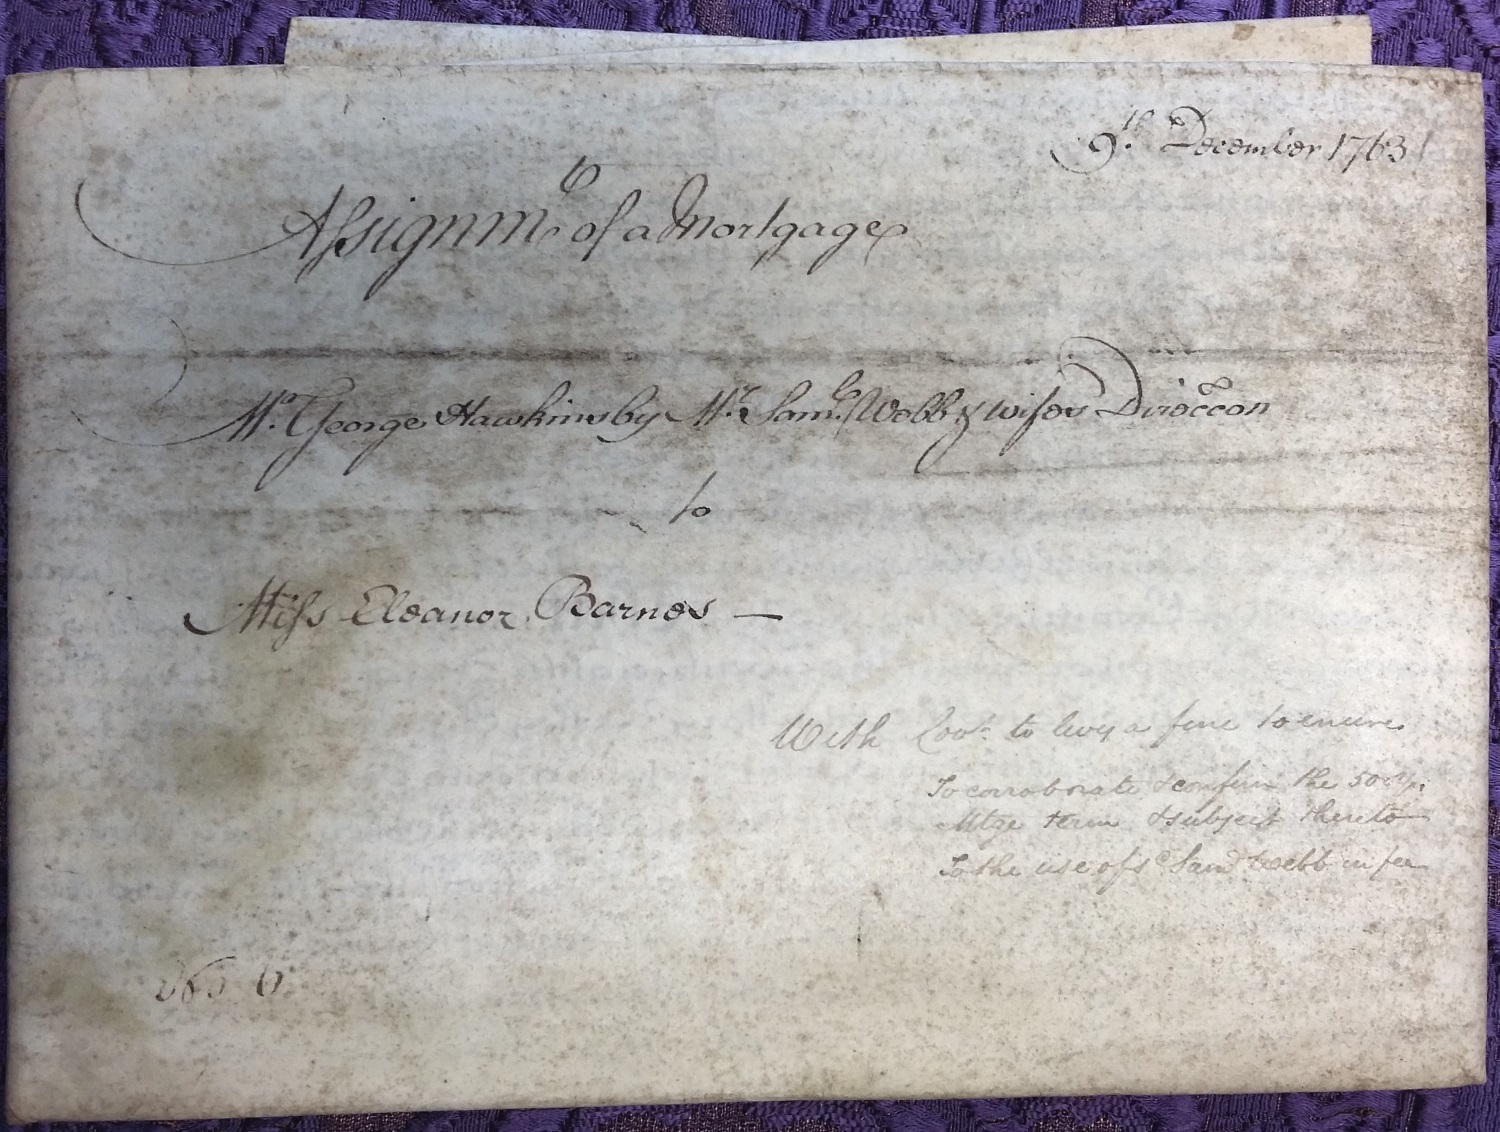 9th December 1763
Assignmt of a Mortgage
Mr George Hawkins by Mr Saml Webb & wifes Direccon
to
Miss Eleanor Barnes —
With Covt to levy a fine to enure
To corroborate & confirm the 500 yr
Mtge term & subject thereto
To the use of sd Saml Webb in fee